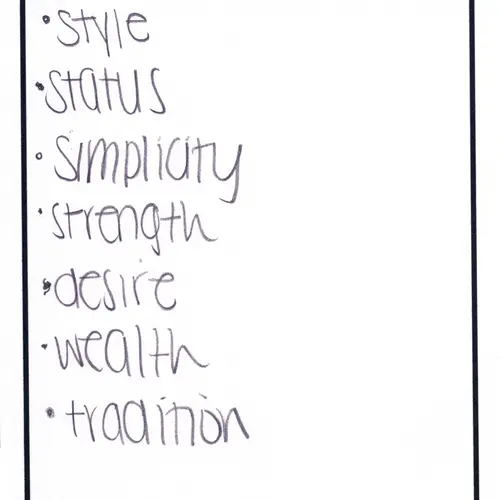 • style
• status
• simplicity
• strength
• desire
• wealth
• tradition